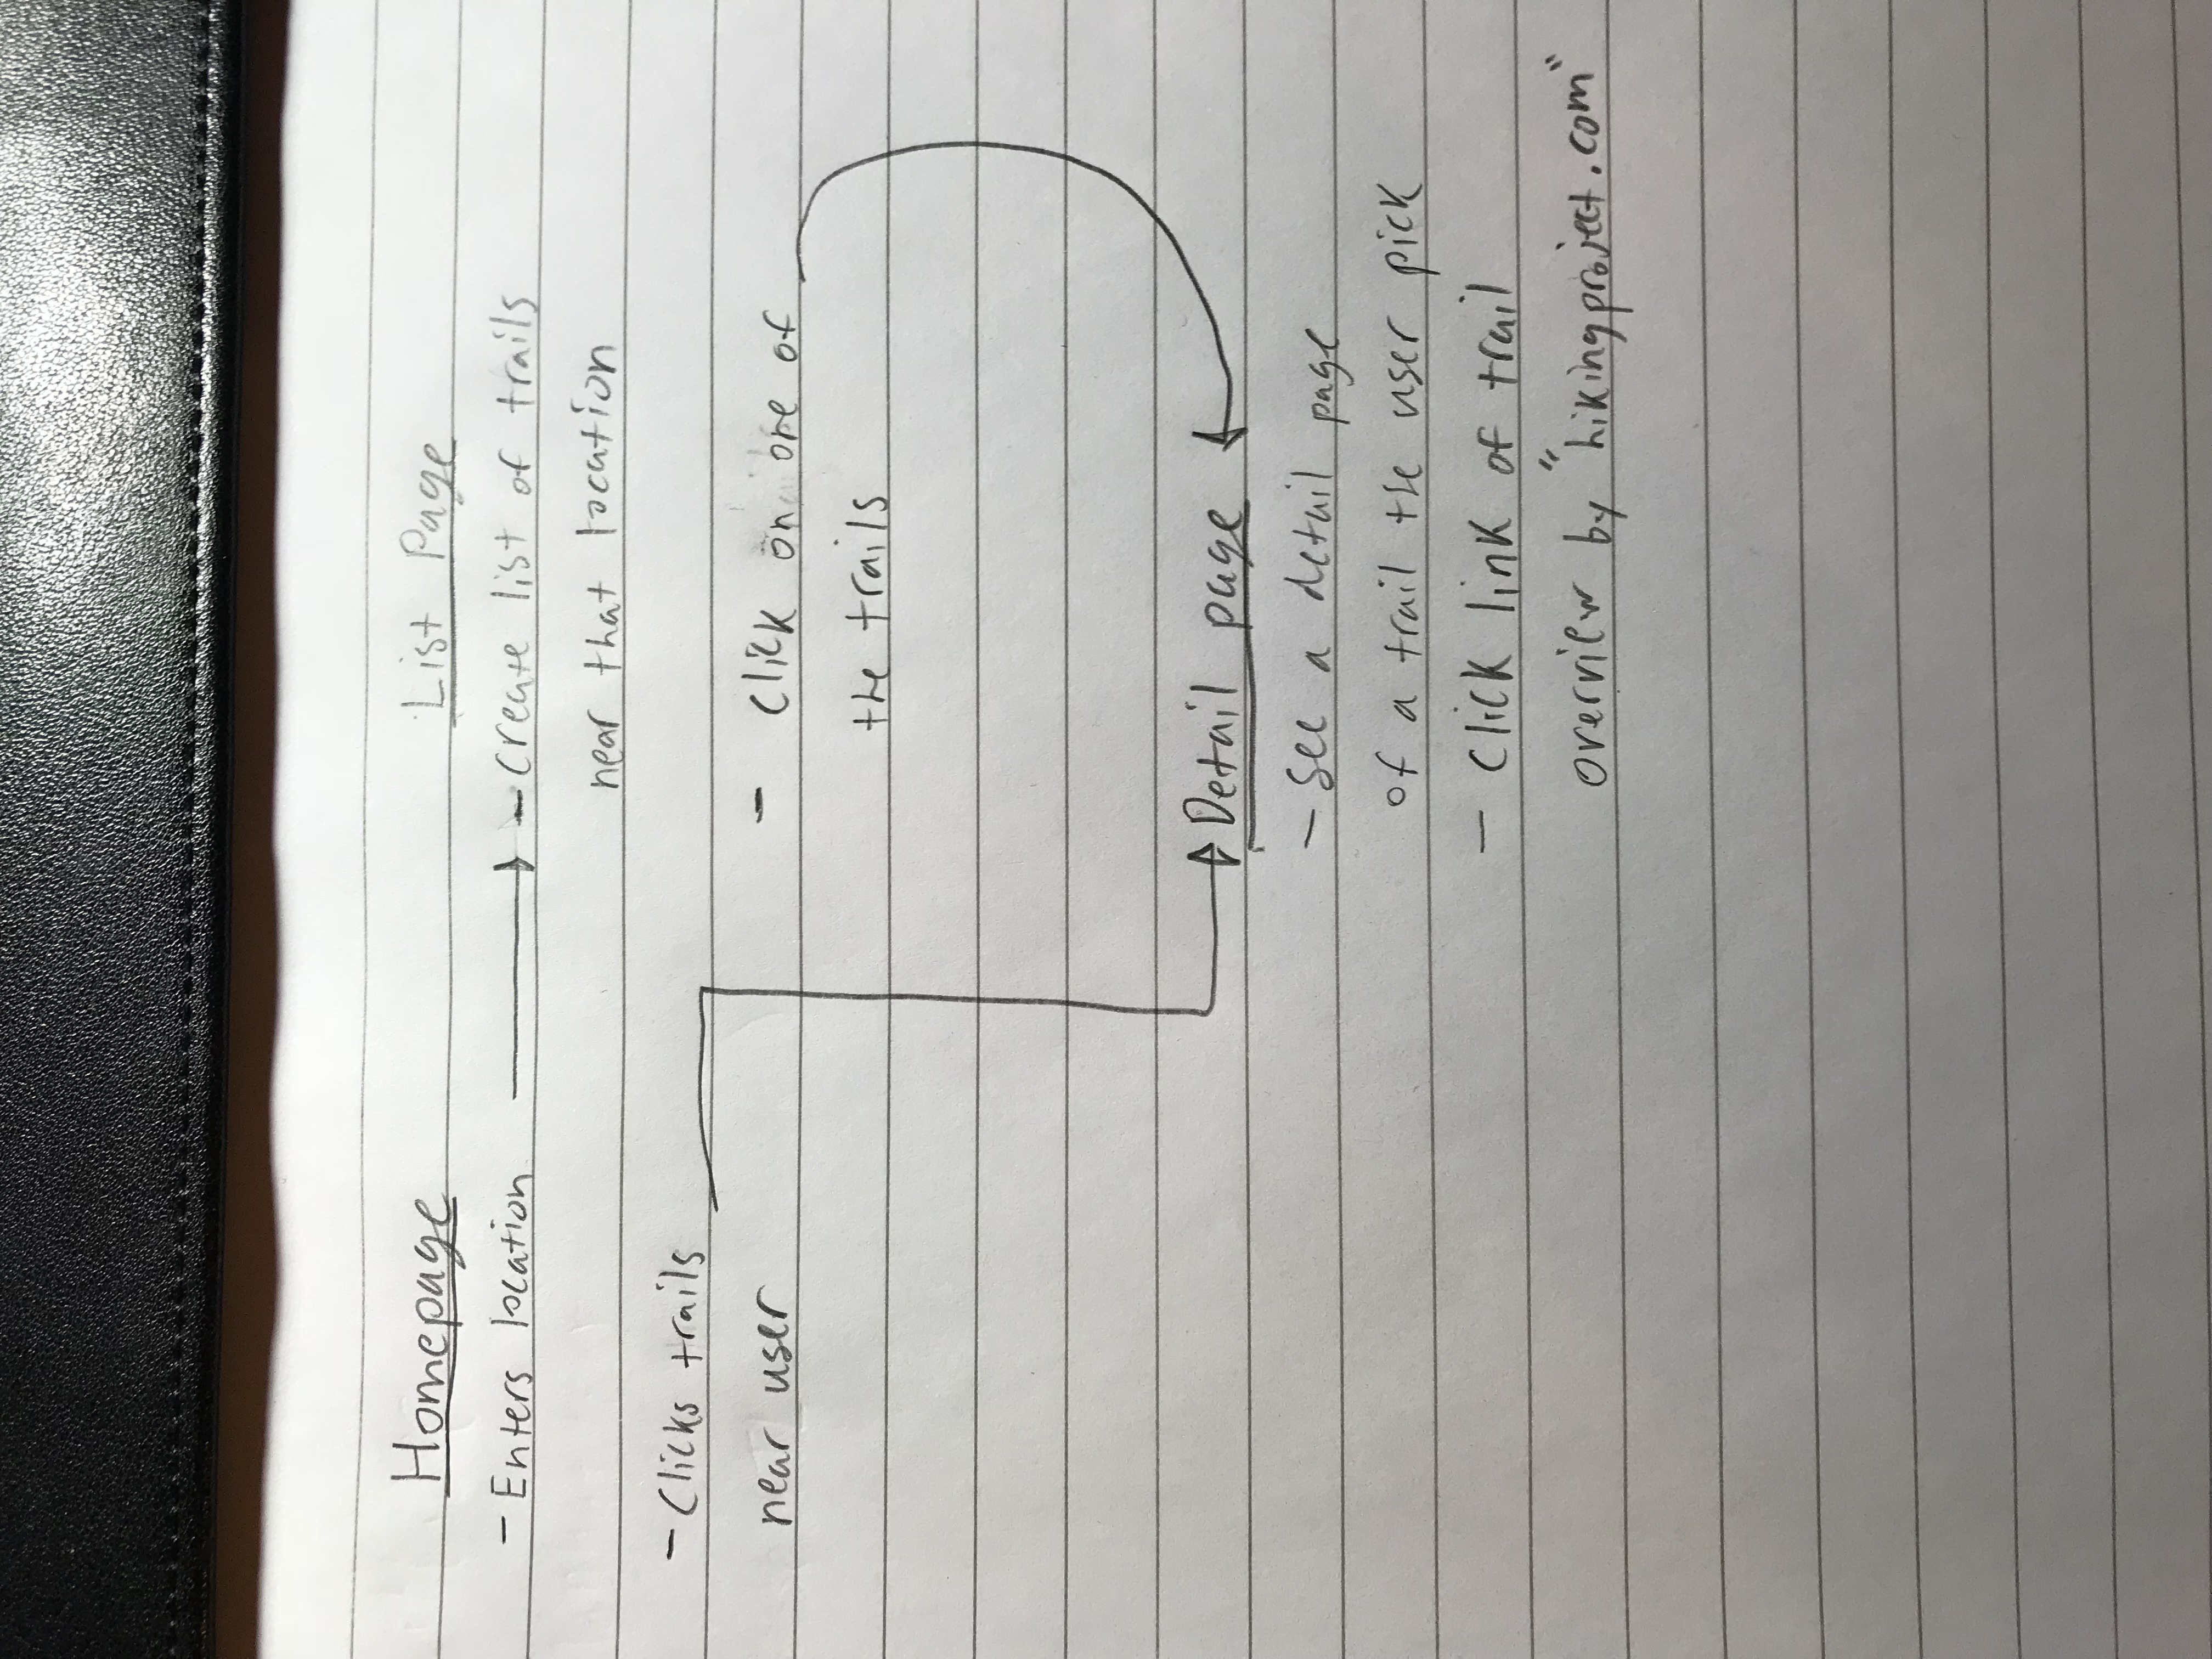 Homepage
- Enters location
- Clicks trails
near user
List Page
- Create list of trails
near that location
- Click on one of
the trails
Detail page
- See a detail page
of a trail the user pick
- Click link of trail
overview by "hikingproject.com"